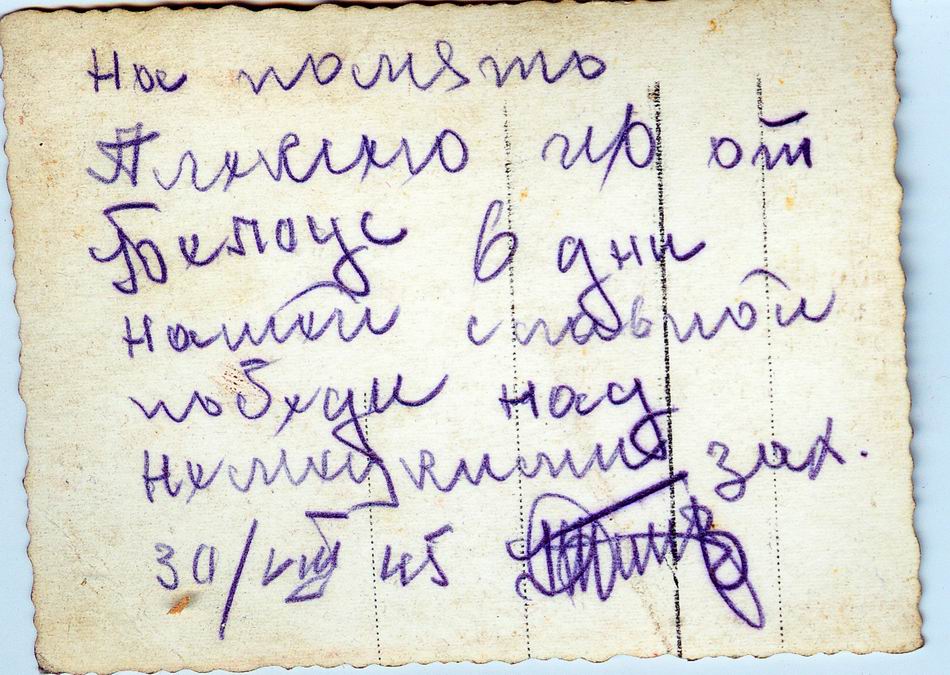 На помято
от
Белоус в дни
нашой славной
победи над
Немецкими зах.
30/VIII 45